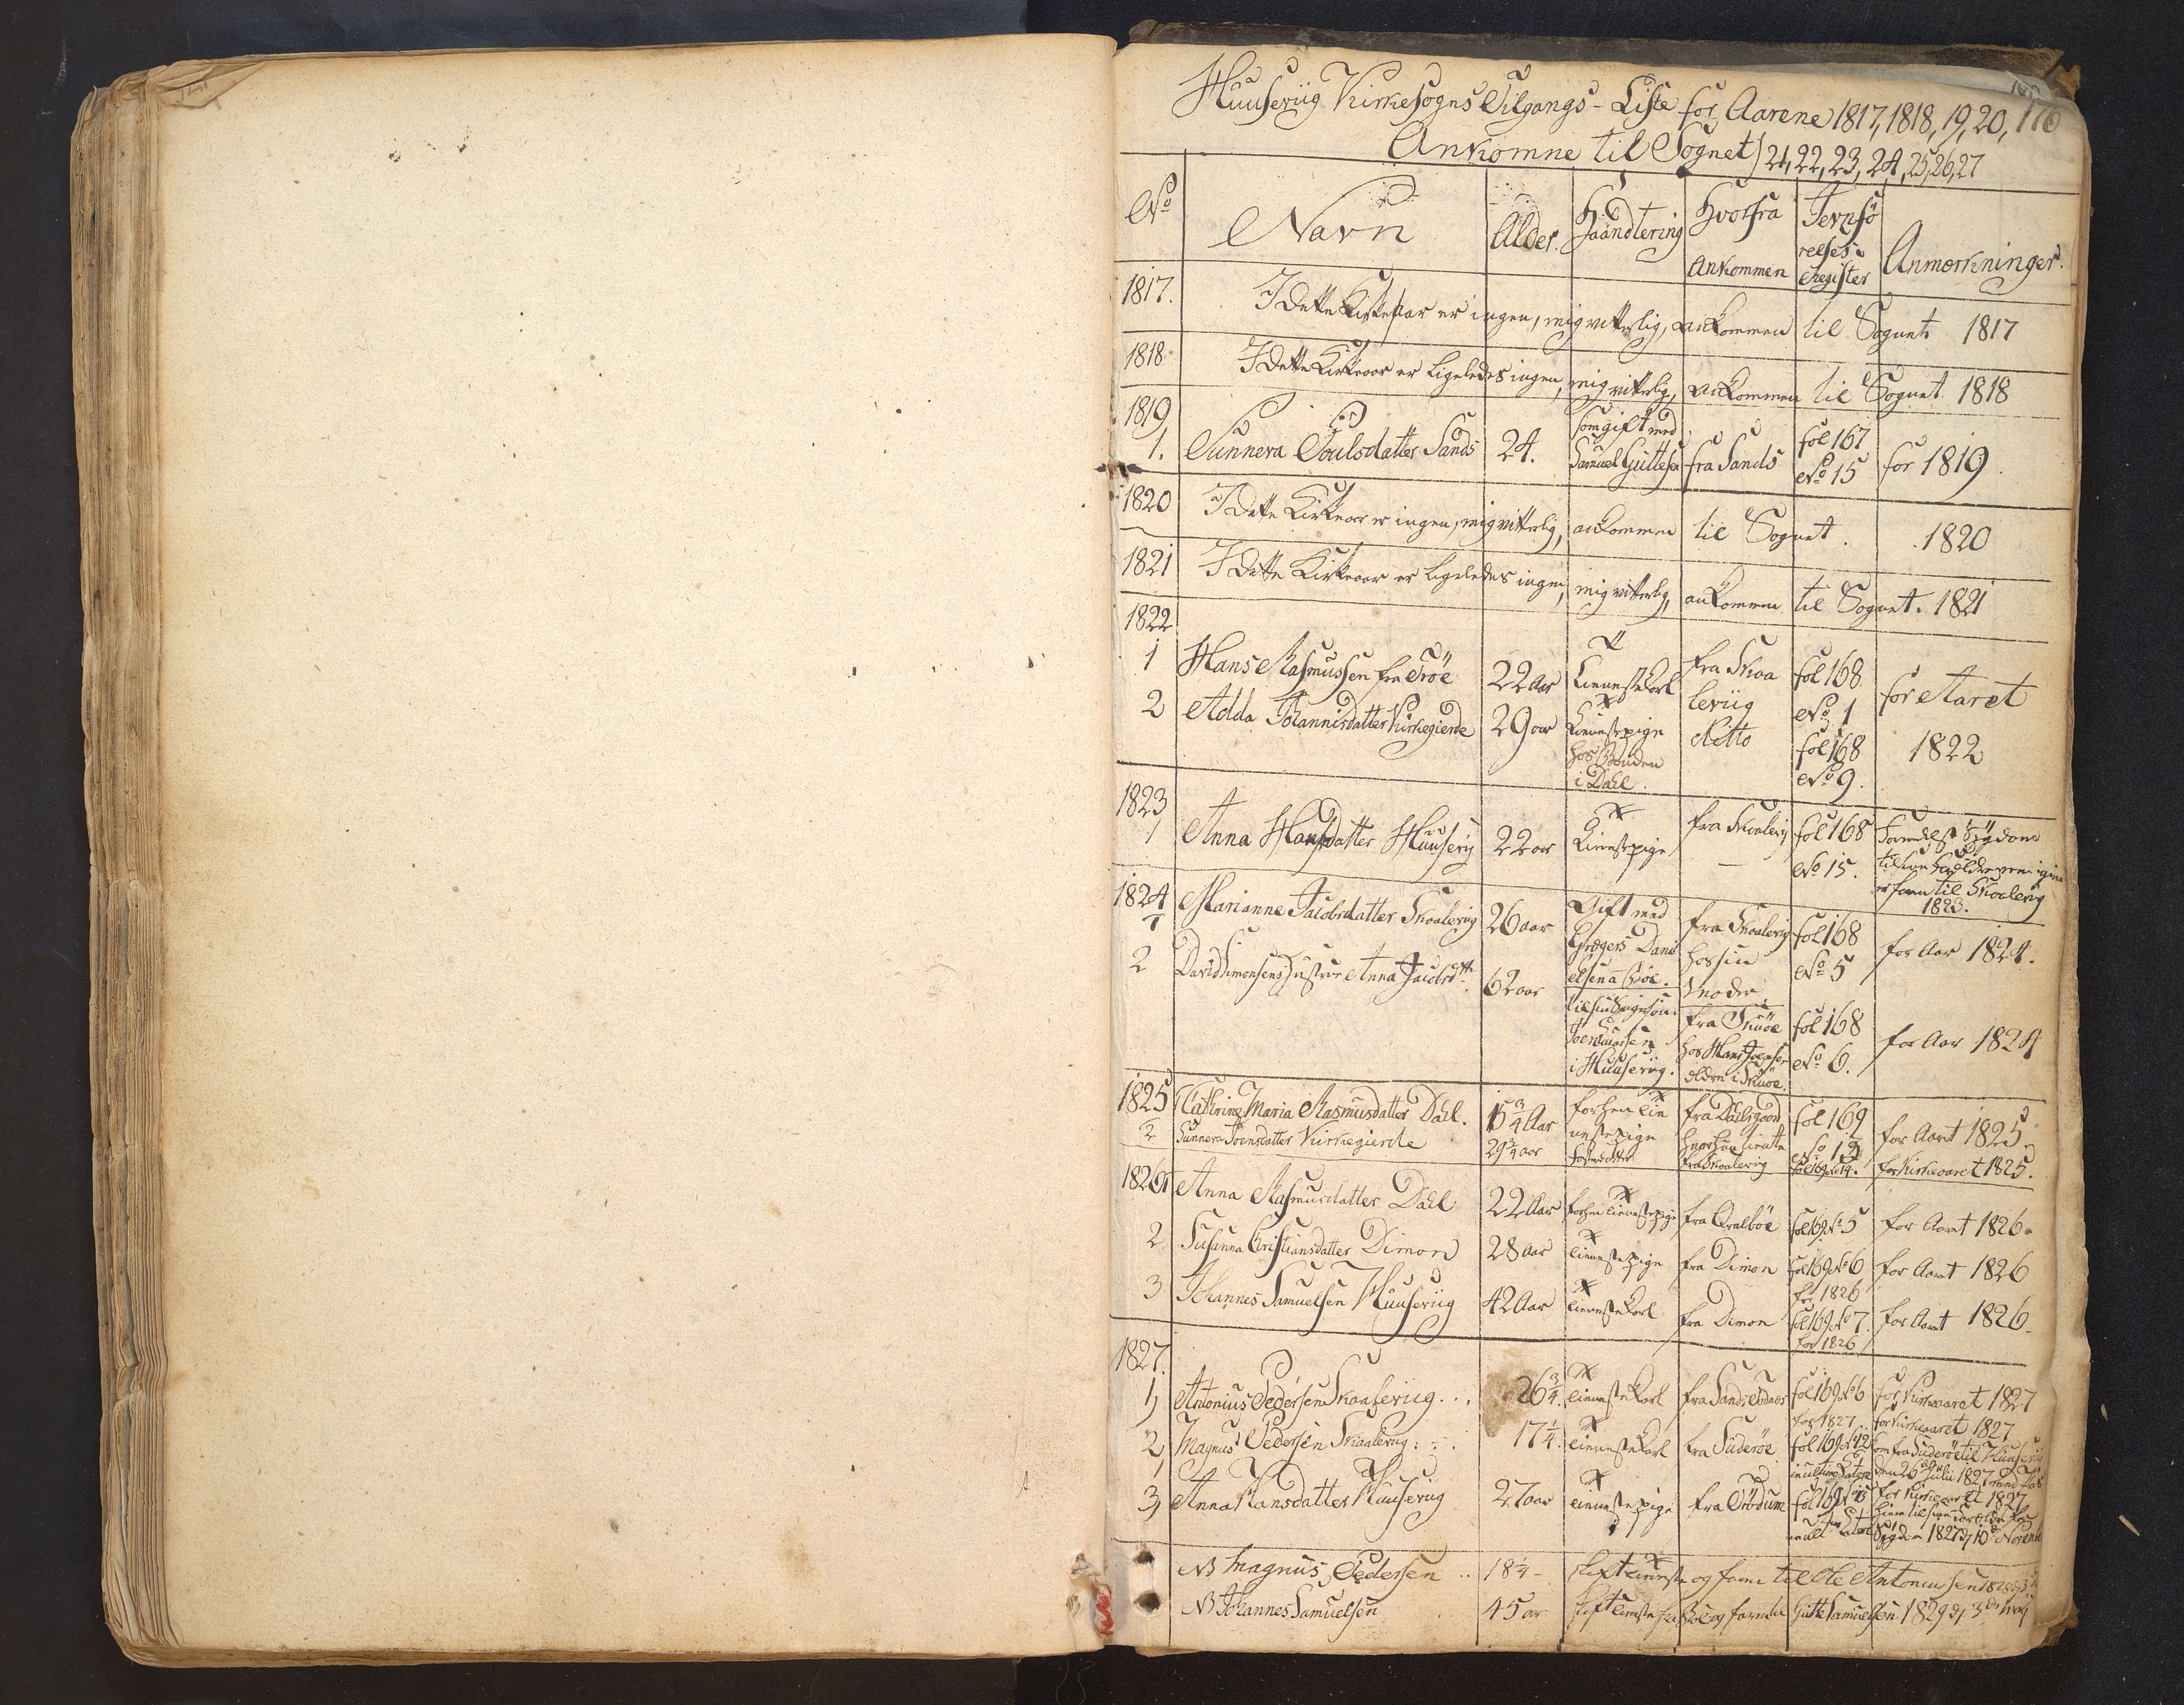 Huuseviig Kirkesogns Tilgangs-Liste for Aarene 1817, 1818, 19, 20, 176
Ankomne til Sognet) 21, 22, 23, 24, 25, 26, 27
No Navn Alder. Haandtering Hvorfra Ankommen Jevnførelses Register Anmærkninger.
1817. I dette Kirkeaar er ingen, mig vitterlig, ankommen til Sognet 1817
1818 I dette Kirkeaar er ligeledes ingen, mig vitterlig, ankommen til Sognet 1818
1819
1. Sunneva Poulsdatter Sands 24. som gift med Samuel Guttesen fra Sands fol 167 No 15 for 1819.
1820 I dette Kirkeaar er ingen, mig vitterlig, ankommen til Sognet. 1820
1821 I dette Kirkeaar er ligeledes ingen, mig vitterlig, ankommen til Sognet. 1821
1822
1 Hans Rasmussen fra Troe 22 Aar tieneste Karl fra Skaaleviig fol 168 No 1 for Aaret
2 Adda Johannisdatter Kirkegierde 29 aar tienestepige hos Bonden i Dahl. ditto fol 168 No 9. 1822
1823
1 Anna Hansdatter Huusevig 22 aar tienestepige fra Skaalevig fol 168 No 15. formedelst Sygdom til sine Forældre igien er farn til Skaalevig 1823.
1824
1 Marianne Jacobsdatter Skaalevig 26 aar Gift med Grægers Danielsen a Bøe. fra Skaalevig hos sin Moder fol 168 No 5 for Aar 1824.
2 David Simonsens Hustrue Anna Jacobsdtr 62 aar til sin Svigersøn i Huusevig. fra Skuøe hos Hans Joensen ældre i Skuøe. fol 168 No 6. for Aar 1824
1825 Cathrine Maria Rasmusdatter Dahl. 15 3/4 Aar forhen tienestepige fra Dahlsgaard fol 169 No 13 for Aaret 1825.
2 Sunneva Joensdatter Kirkegierde 29 3/4 aar fosterdatter fra Skaalevig fol 169 No 14. for Kirkeaaret 1825.
1826 Anna Rasmusdatter Dahl 22 Aar forhen tienestepige fra Qvalbøe fol 169 No 5 for Aaret 1826.
2. Susanna Christiansdatter Dimon 28 aar tienestepige fra Dimon fol 169 No 6 for 1826 for Aaret 1826
3 Johannes Samuelsen Huuseviig 42 Aar tieneste Karl fra Dimon fol 169 No 7. for 1826 for Aaret 1826.
1827.
1, Antonius Pedersen Skaaleviig... 26 3/4. tieneste Karl fra Sands fol 169 No 6 for 1827 for Kirkeaaret 1827
2, Magnus Pedersen Skaalevig... 17 1/4. tieneste Karl fra Suderøe fol 169 No 12 for Kirkeaaret 1827 kom fra Suderøe til Huusevig den 26 Julii 1827 med Pas
3, Anna Hansdatter Huusevig 27 aar tienestepige fra Trødum fol 169 for Kirkeaaret 1827 hiem til sine Forældre for Sygdom 1827 d, 10 Novemb
NB Magnus Pedersen .. 18 1/4 - skift tieneste og farn til Ole Antoniusen
NB Johannes Samuelsen 45 ar skift tieneste fra Bøe og farn til Gutte Samuelsen 1829 d, 3 May